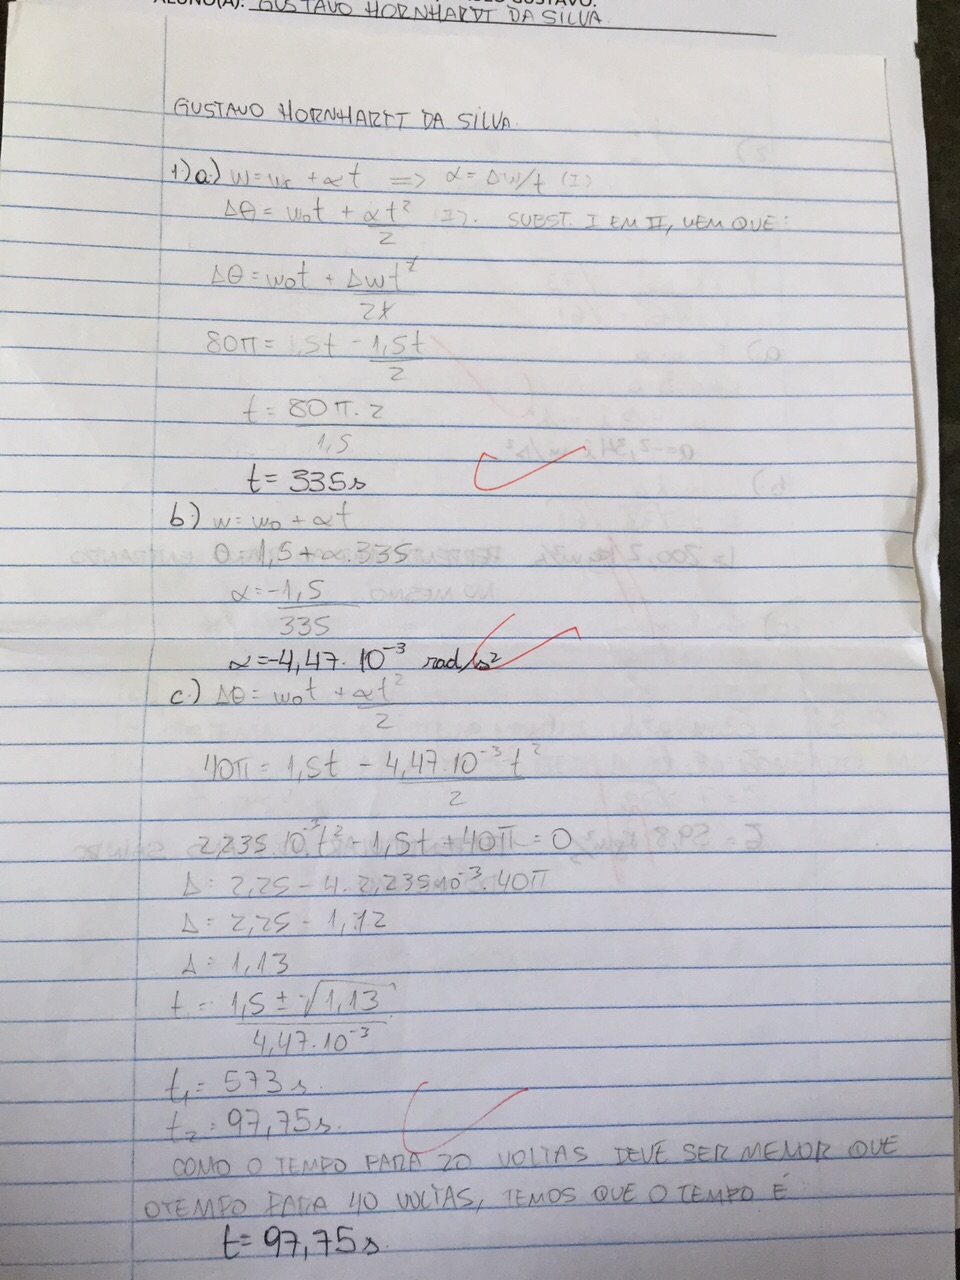 ALUNO(A): GUSTAVO HORNHARDT DA SILVA.
GUSTAVO HORNHARDT DA SILVA.
1) a.) w = w₀ + αt => α = Δw/t (I)
Δθ = w₀t + αt²/2 (II). SUBST. I EM II, VEM QUE:
Δθ = w₀t + Δwt²/2t
80π = 1,5t - 1,5t/2
t = 80π.2/1,5
t = 335s
b.) w = w₀ + αt
0 = 1,5 + α.335
α = -1,5/335
α = -4,47.10⁻³ rad/s²
c.) Δθ = w₀t + αt²/2
40π = 1,5t - 4,47.10⁻³t²/2
2,235.10⁻³t² - 1,5t + 40π = 0
Δ = 2,25 - 4.2,235x10⁻³.40π
Δ = 2,25 - 1,12
Δ = 1,13
t = 1,5 ± √1,13/4,47.10⁻³
t₁ = 573s.
t₂ = 97,75s.
COMO O TEMPO PARA 20 VOLTAS DEVE SER MENOR QUE
O TEMPO PARA 40 VOLTAS, TEMOS QUE O TEMPO É
t = 97,75s.